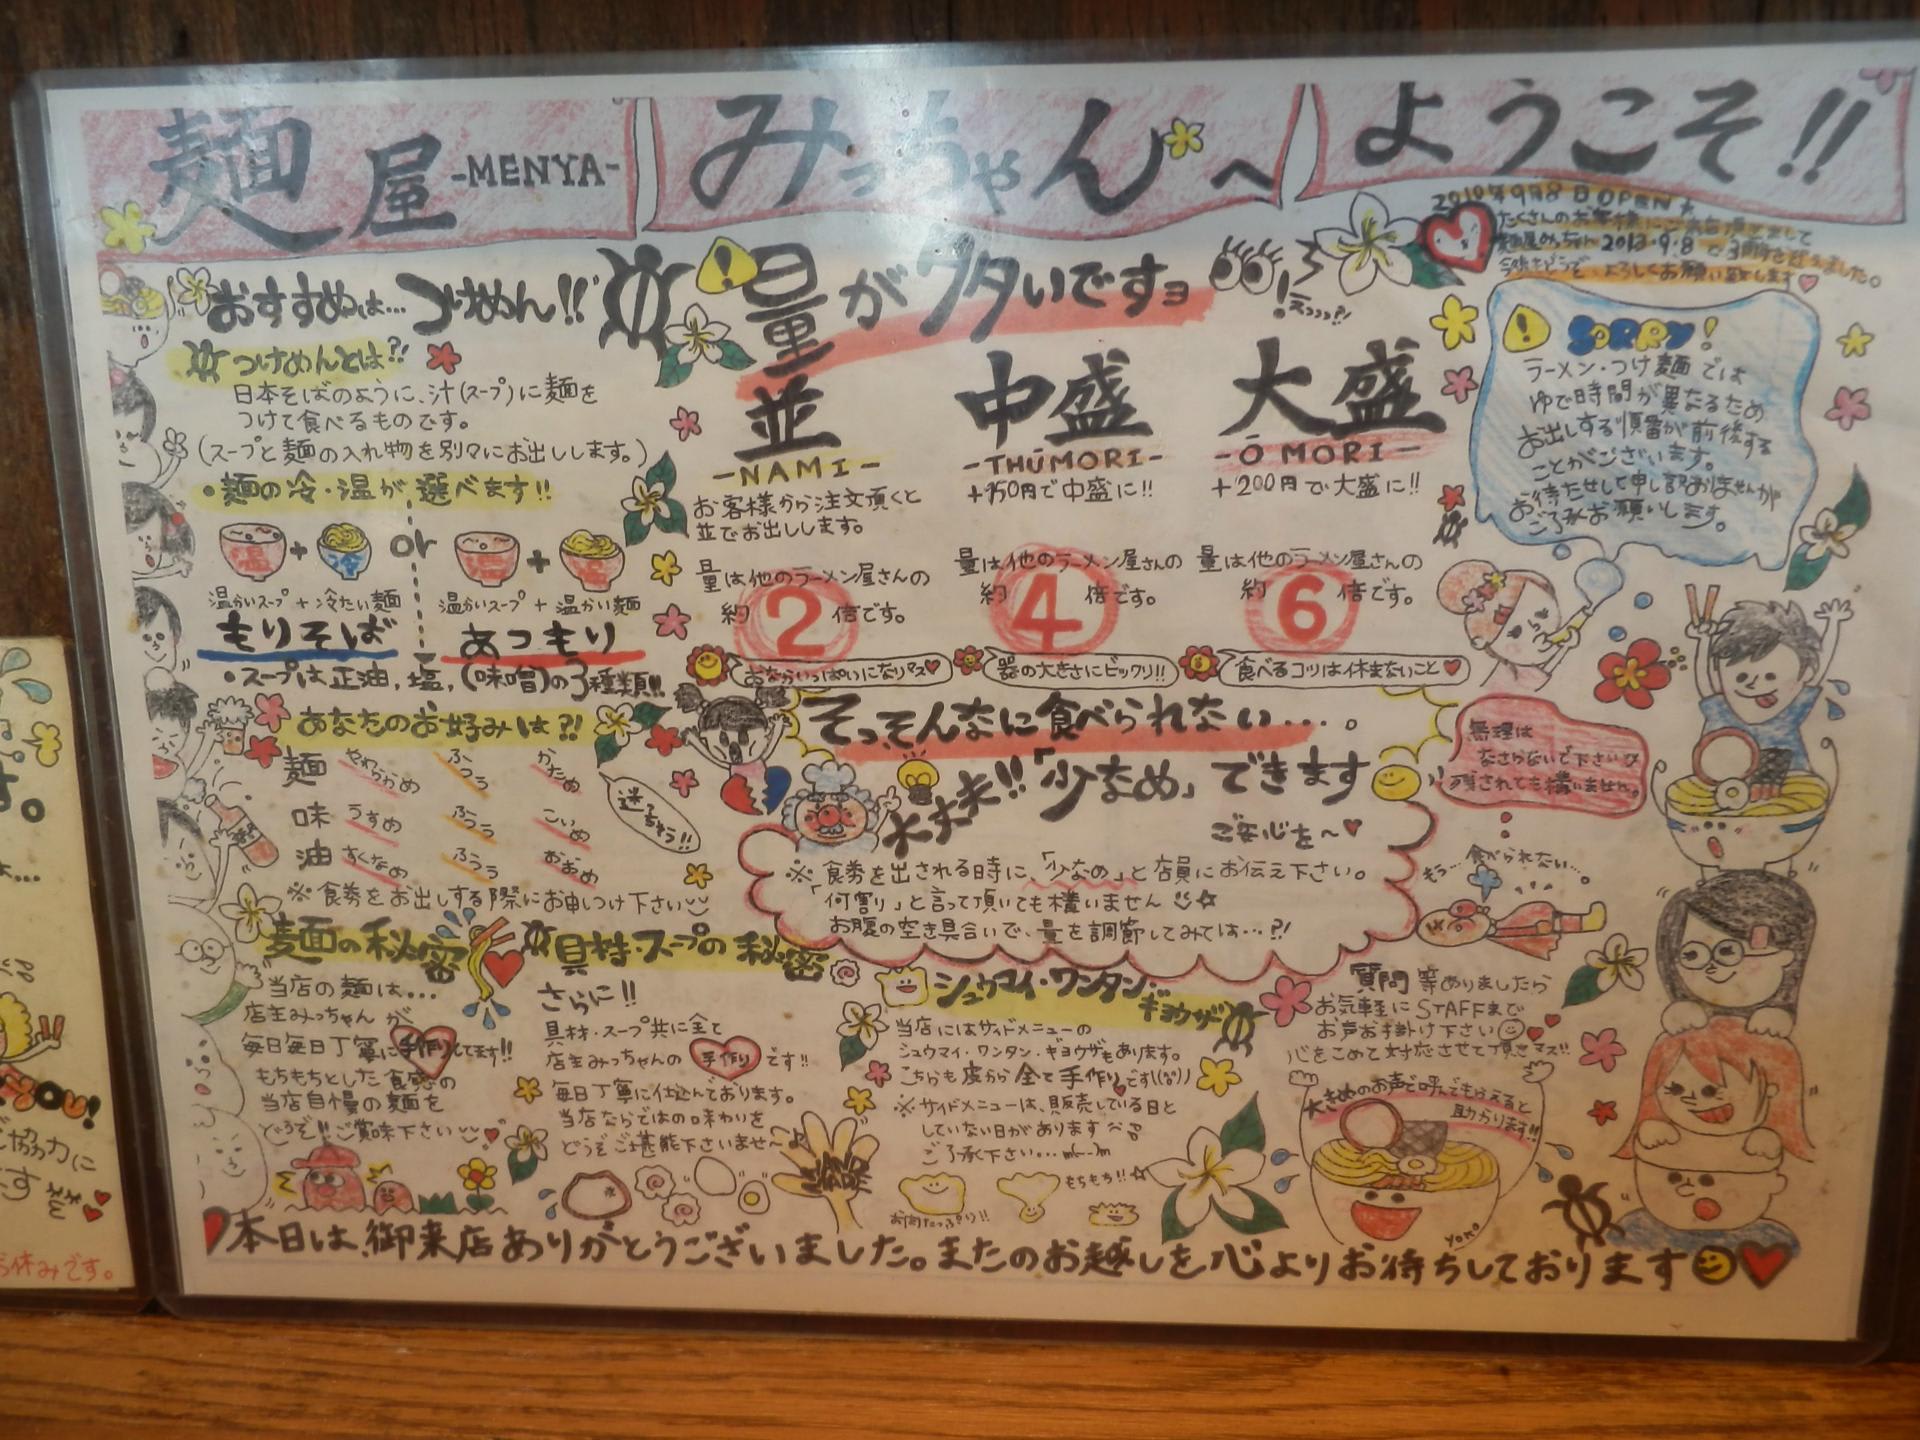 麺屋-MENYA- みっちゃんへ ようこそ!!
2010年9月8日OPEN★
たくさんのお客様にご来店頂きまして
麺屋みっちゃん2013.9.8で3周年を迎えました。
今後ともどうぞ、よろしくお願い致します♥
おすすめは…つけめん!!
つけめんとは?!
日本そばのように、汁(スープ)に麺を
つけて食べるものです。
(スープと麺の入れ物を別々にお出しします。)
・麺の冷・温が選べます!!
温 + 冷 or 温 + 温
温かいスープ + 冷たい麺
温かいスープ + 温かい麺
もりそば
あつもり
・スープは正油,塩,(味噌)の3種類!!
あなたのお好みは?!
麺 やわらかめ ふつう かため
味 うすめ ふつう こいめ
油 すくなめ ふつう おおめ
迷っちゃう!!
※食券をお出しする際にお申しつけ下さい
量がヲタいですョ
!えっっっ?!
並
-NAMI-
お客様から注文頂くと
並でお出しします。
量は他のラーメン屋さんの
約2倍です。
おなかいっぱいになりマス♥
中盛
-THŪMORI-
+150円で中盛に!!
量は他のラーメン屋さんの
約4倍です。
器の大きさにビックリ!!
大盛
-Ō MORI-
+200円で大盛に!!
量は他のラーメン屋さんの
約6倍です。
食べるコツは休まないこと♥
SORRY!
ラーメン・つけ麺では
ゆで時間が異なるため
お出しする順番が前後する
ことがございます。
お待たせして申し訳ありませんが
ご了承お願いします。
そっ、そんなに食べられない…。
大丈夫!!「少なめ」できます
ご安心を〜♥
無理は
なさらないで下さい
残されても構いません。
もう…食べられない…
※食券を出される時に、「少なめ」と店員にお伝え下さい。
「何割り」と言って頂いても構いません
お腹の空き具合いで、量を調節してみては…?!
麺の秘密
当店の麺は…
店主みっちゃんが
毎日毎日丁寧に手作りしてます!!
もちもちとした食感の
当店自慢の麺を
どうぞ!!ご賞味下さい
具材・スープの秘密
さらに!!
具材・スープ共に全て
店主みっちゃんの手作りです!!
毎日丁寧に仕込んでおります。
当店ならではの味わりを
どうぞご堪能下さいませ〜♪
シュウマイ・ワンタン・ギョウザ
当店にはサイドメニューの
シュウマイ・ワンタン・ギョウザもあります。
こちらも皮から全て手作りです
※サイドメニューは、販売している日と
していない日があります
ご了承下さい…m(--)m
お肉たっぷり!!
もちもち!!☆
質問等ありましたら
お気軽にSTAFFまで
お声お掛け下さい
心をこめて対応させて頂きマス!!
大きめのお声で呼んでもらえると
助かります!!
YOKO
♥本日は、御来店ありがとうございました。またのお越しを心よりお待ちしております♥
ご協力に
お休みです。